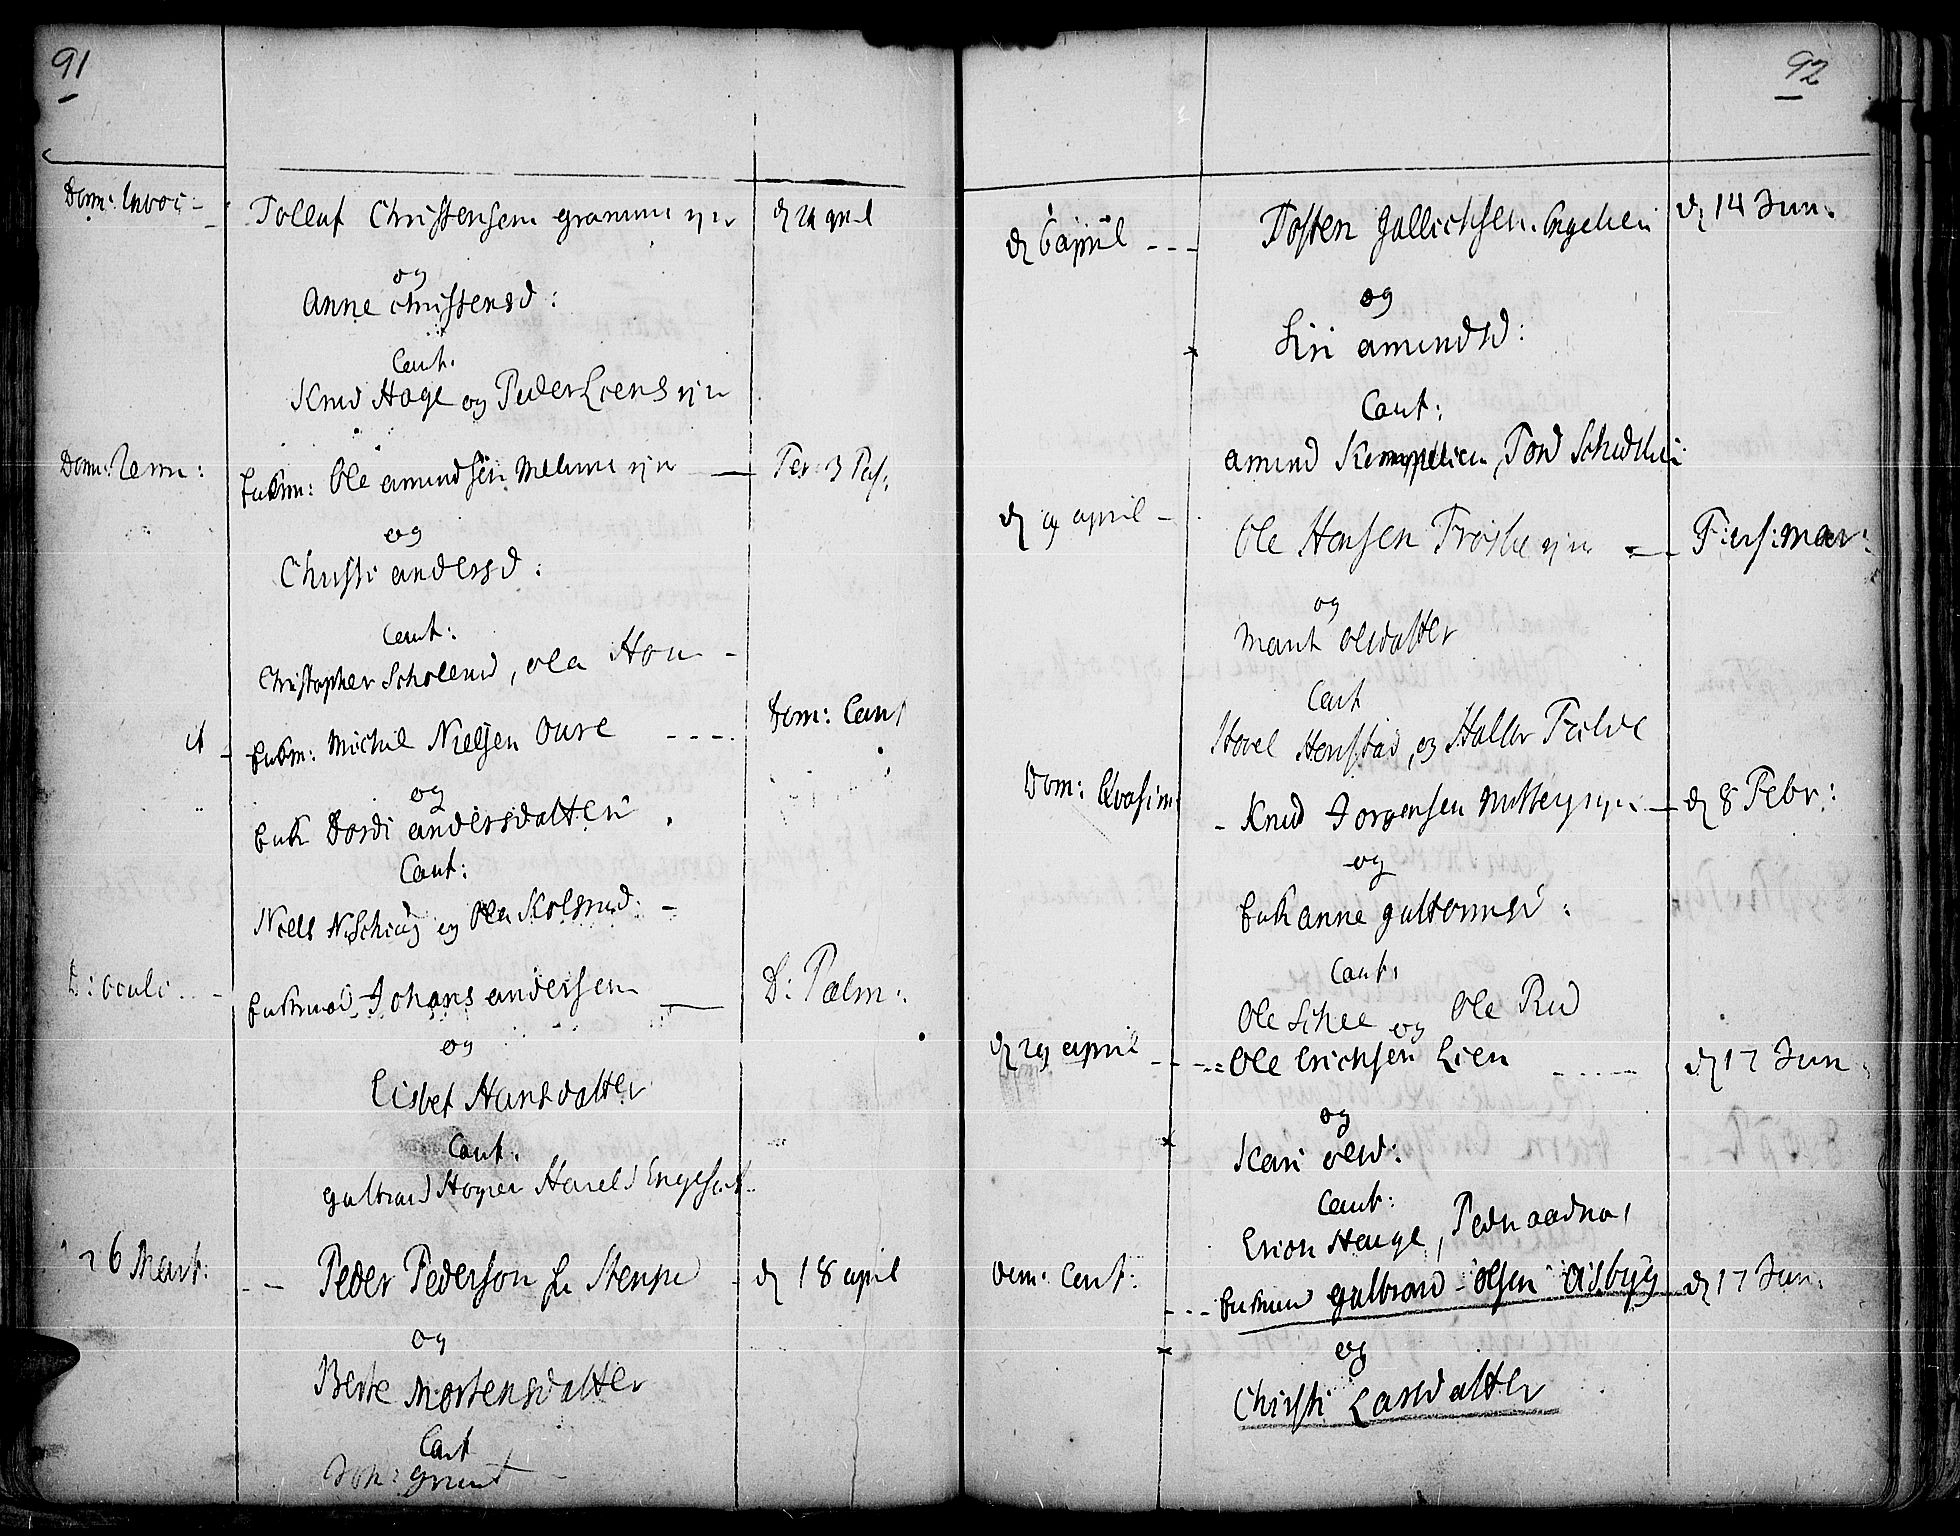 91
Dom: Invoc - Tollef Christensen gramm ejn
og
Anne Christensd:
Caut.
Knud Hage og Peder Liens ejn
Dom: Remi: Enkm: Ole amundsen Melum ejn — Fer: 3 Pas:
og
Christi andersd:
Caut:
Christopher Scholerud, Ola Hon -
it - Enkm: Michil Nielsen Oure - - - - Dom: Cant
og
Enk Dordi andersdatter
Caut:
Niels N. Schiag og Ola Kolsrud: -
D: Oculi - Enkmand Johans andersen — D: Palm:
og
Lisbet Hansdatter
Caut.
gulbrand Hagen Harels Engeset
26 Mart: - - Peder Pederson - d 18 april
og
Berte Mortensdatter
Caut
Joh: grunt
92
d 6 april - - - Tosten gullichsen. d 14 Jun.
og
Siri amundsd:
Caut:
amund, Tord
d 9 april - Ole Hansen ejn — F: us: mar:
og
Marit olsdatter
Caut
Hovel Henstad, og Haller
Dom: Qvasim: - Knud Jorgensen ejn — d 8 Febr:
og
Enk anne guttormsd:
Caut:
Ole Schee og Ole Rud
d 29 april - - - Ole Erichsen Lien - - - - d 17 Jun.
og
Kari olsd:
Caut:
Erich Hauge, Peder aadnas
Dom: Cant: - - - Enkmand gulbrand - olsen Aisbyg — d 17 Jun.
og
Christi Larsdatter